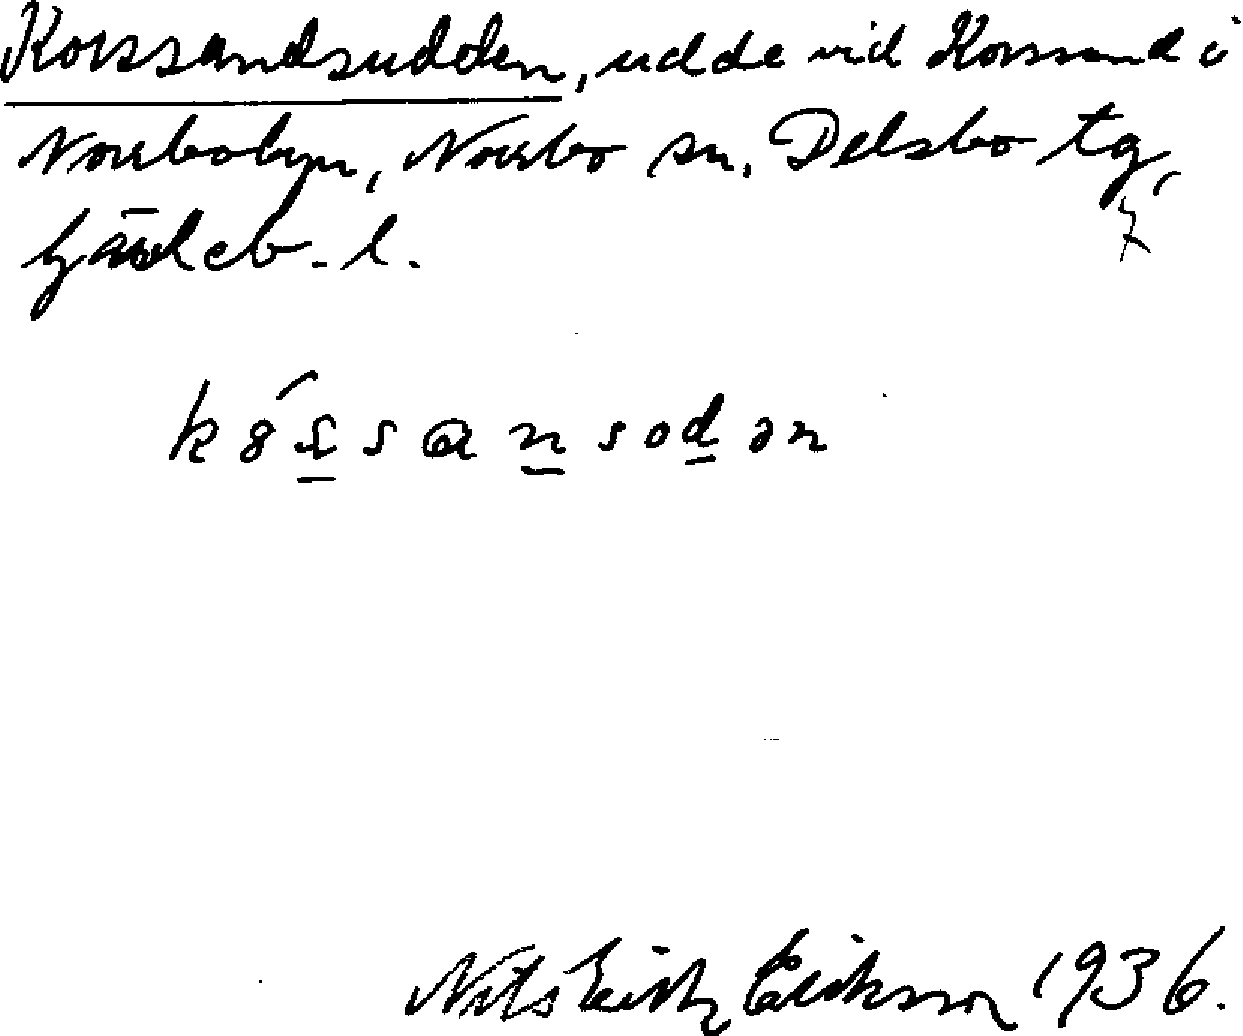 Korssandsudden, udde vid Korssand i
Norrbobyn, Norrbo sn. Delsbo tg,
Gävleb. l.
Nils Erik Eriksson 1936.